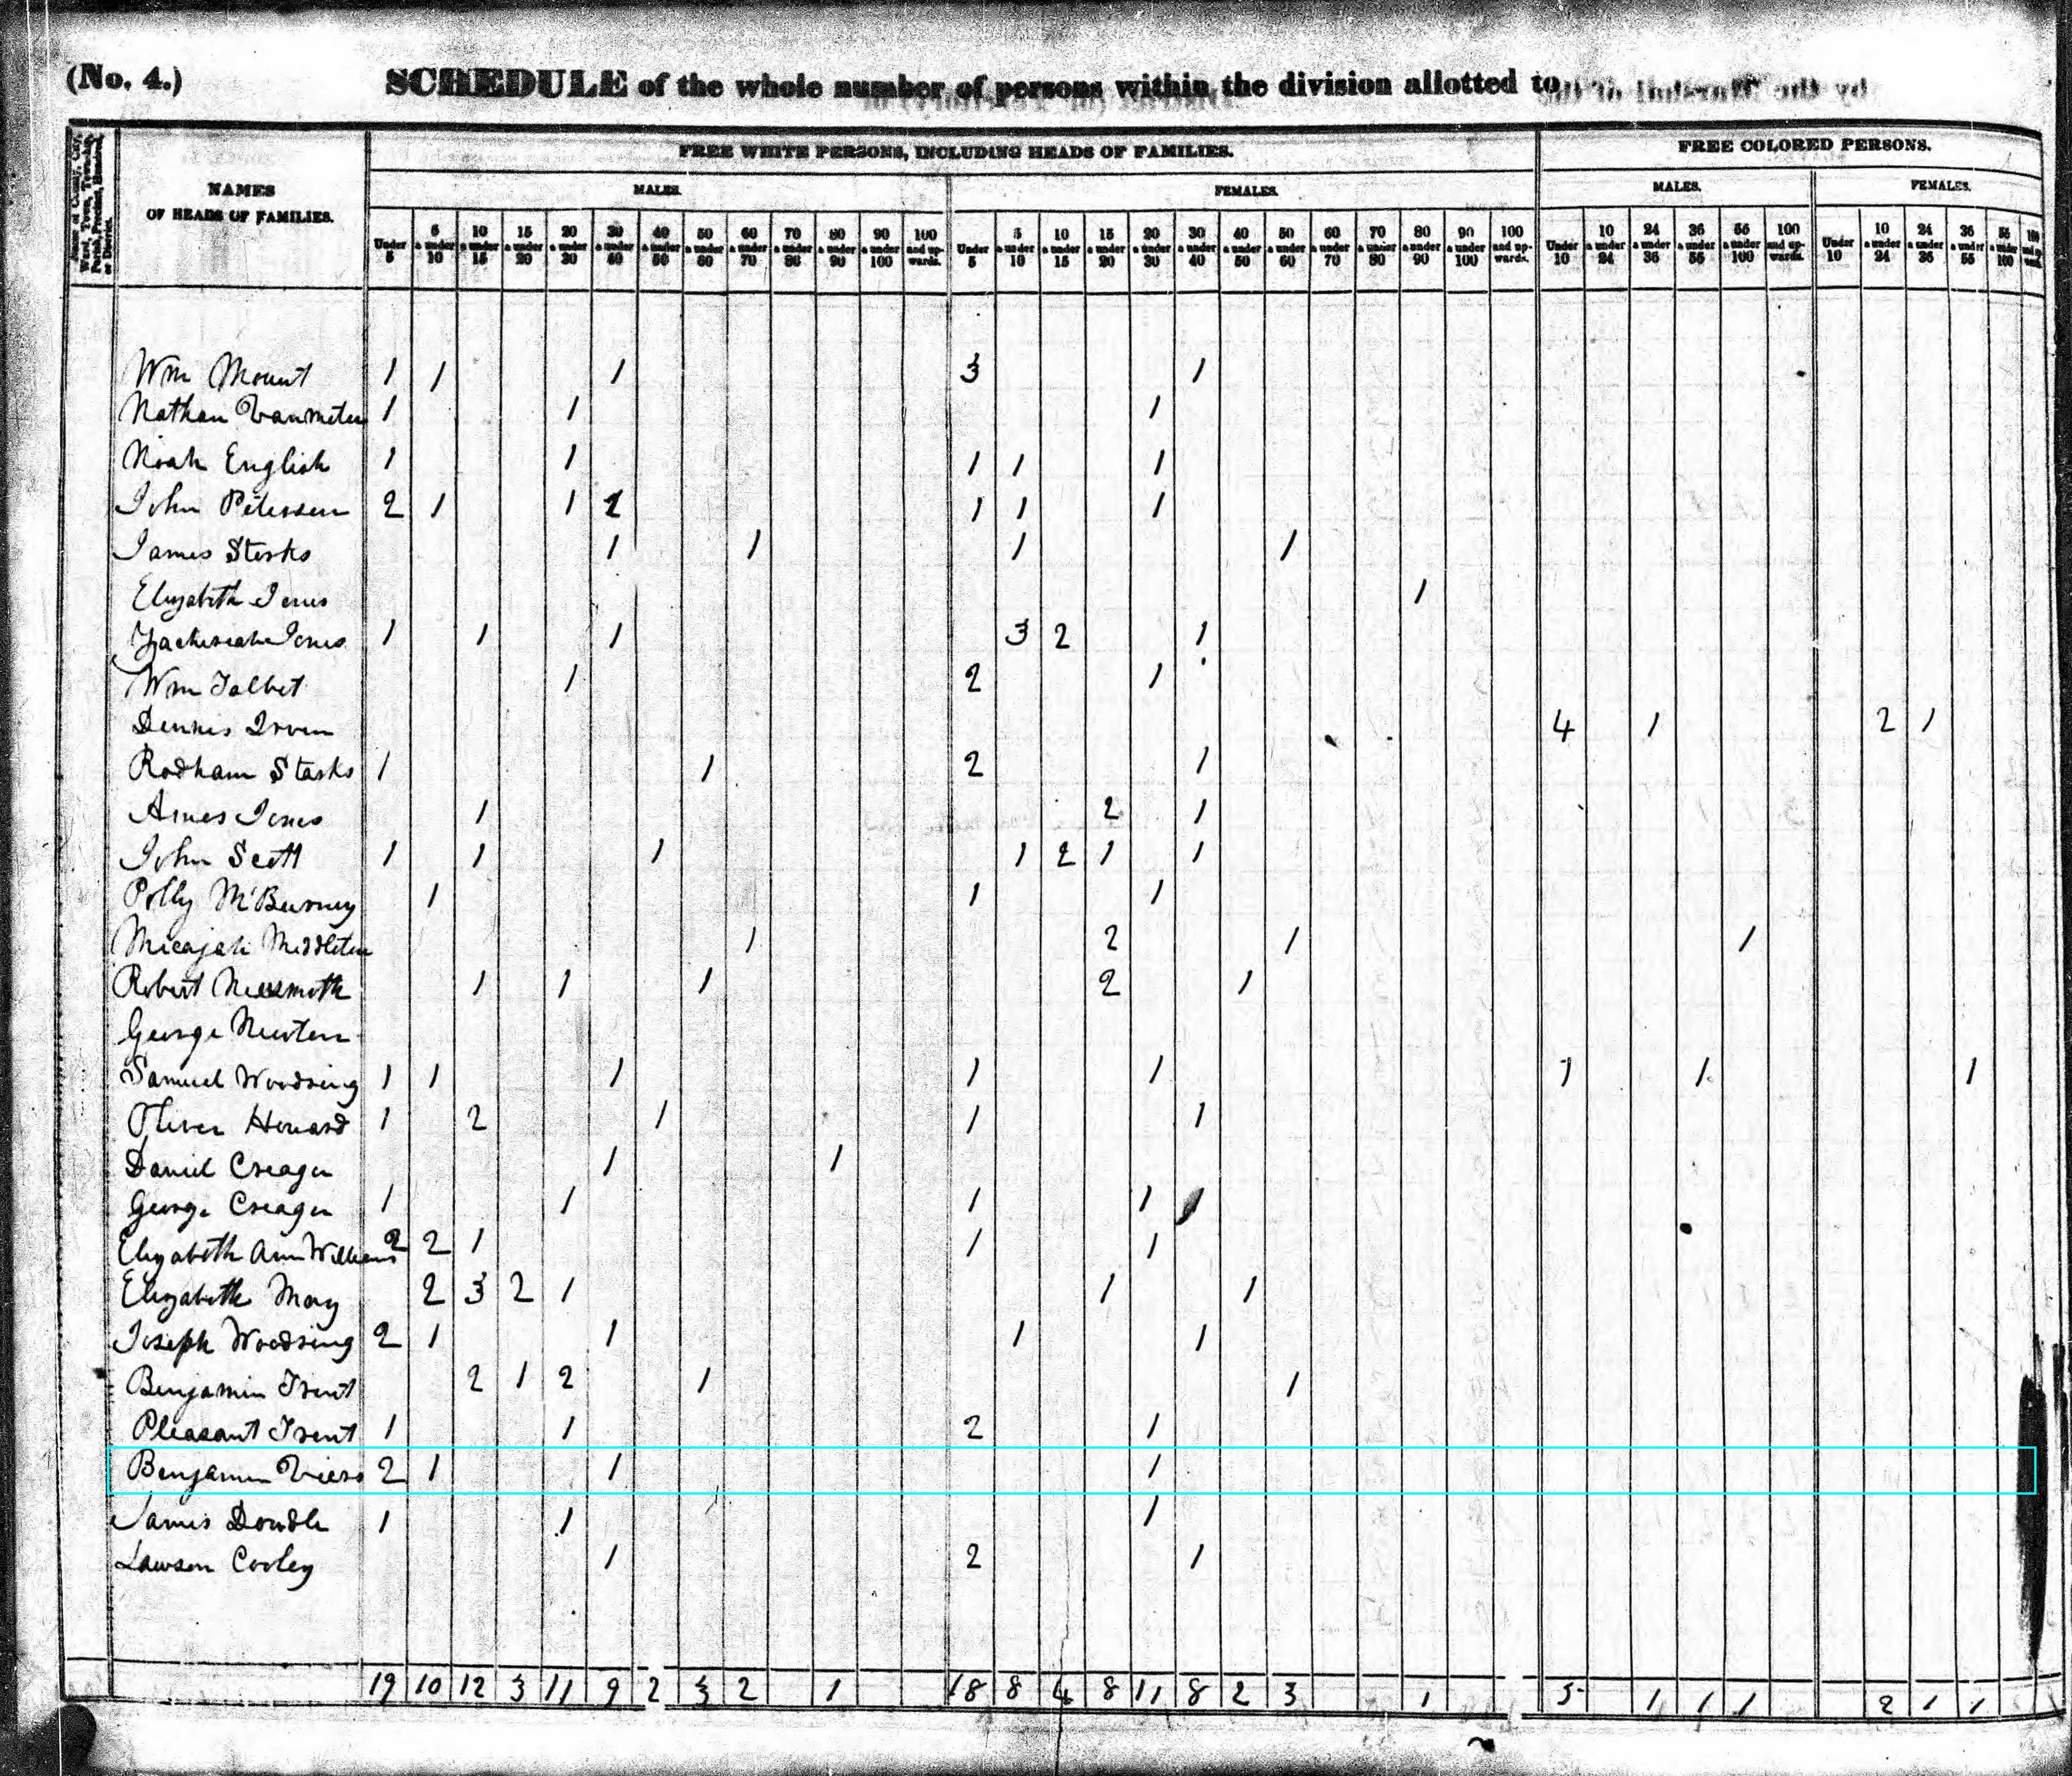 (No. 4.) SCHEDULE of the whole number of persons within the division allotted to
FREE WHITE PERSONS, INCLUDING HEADS OF FAMILIES. FREE COLORED PERSONS.
NAMES OF HEADS OF FAMILIES. MALES. FEMALES. MALES. FEMALES.
Under 5 5 & under 10 10 & under 15 15 & under 20 20 & under 30 30 & under 40 40 & under 50 50 & under 60 60 & under 70 70 & under 80 80 & under 90 90 & under 100 100 and upwards. Under 5 5 & under 10 10 & under 15 15 & under 20 20 & under 30 30 & under 40 40 & under 50 50 & under 60 60 & under 70 70 & under 80 80 & under 90 90 & under 100 100 and upwards. Under 10 10 & under 24 24 & under 36 36 & under 55 55 & under 100 100 and upwards. Under 10 10 & under 24 24 & under 36 36 & under 55 55 & under 100
Wm Mount 1 1 1 3 1
Nathan Vanmeter 1 1 1
Noah English 1 1 1 1 1
John Peterson 2 1 1 2 1 1 1
James Sterks 1 1 1 1
Elizabeth Jones 1
Zacheriah Jones 1 1 1 3 2 1
Wm Talbot 1 2 1
Dennis Irven 4 1 2 1
Rodham Starks 1 1 2 1
Amos Jones 1 2 1
John Scott 1 1 1 1 2 1 1
Polly McBurney 1 1 1
Micajah Middleton 1 2 1 1
Robert 1 1 1 2 1
George Newton
Samuel Woodring 1 1 1 1 1 1 1 1
Oliver Howard 1 2 1 1 1
Daniel Creager 1 1
George Creager 1 1 1 1
Elizabeth Ann Williams 2 2 1 1 1
Elizabeth May 2 3 2 1 1 1
Joseph Woodring 2 1 1 1 1
Benjamin Trent 2 1 2 1 1
Pleasant Trent 1 1 2 1
Benjamin Viers 2 1 1 1
James Dowdle 1 1 1
Lawson Cooley 1 2 1
19 10 12 3 11 9 2 3 2 1 18 8 4 8 11 8 2 3 1 5 1 1 1 2 1 1